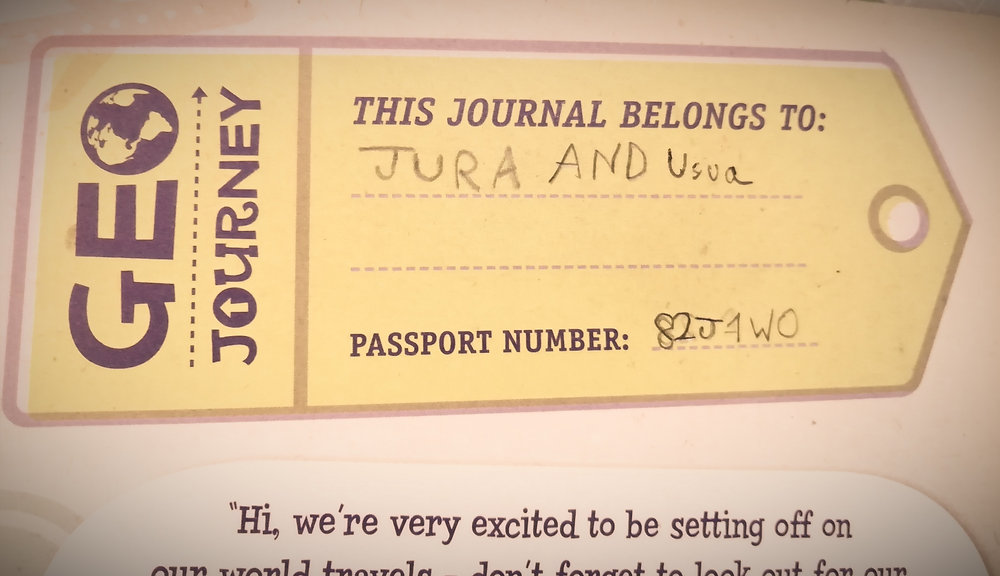 GEO
JOURNEY
THIS JOURNAL BELONGS TO:
JURA AND Usua
PASSPORT NUMBER: 82J1WO
"Hi, we're very excited to be setting off on
our world travels - don't forget to look out for our